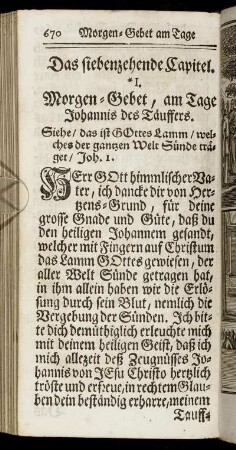 670 Morgen-Gebet am Tage
Das siebenzehende Capitel.
*I.
Morgen-Gebet, am Tage
Johannis des Täuffers.
Siehe/ das ist GOttes Lamm/ wel-
ches der gantzen Welt Sünde trä-
get/ Joh. 1.
HErr GOtt himmlischer Va-
ter, ich dancke dir von Her-
tzens-Grund, für deine
grosse Gnade und Güte, daß du
den heiligen Johannem gesandt,
welcher mit Fingern auf Christum
das Lamm GOttes gewiesen, der
aller Welt Sünde getragen hat,
in ihm allein haben wir die Erlö-
sung durch sein Blut, nemlich die
Vergebung der Sünden. Ich bit-
te dich demüthiglich erleuchte mich
mit deinem heiligen Geist, daß ich
mich allezeit deß Zeugnüsses Jo-
hannis von JEsu Christo hertzlich
tröste und erfreue, in rechtem Glau-
ben dein beständig erharre, meinem
Tauff-